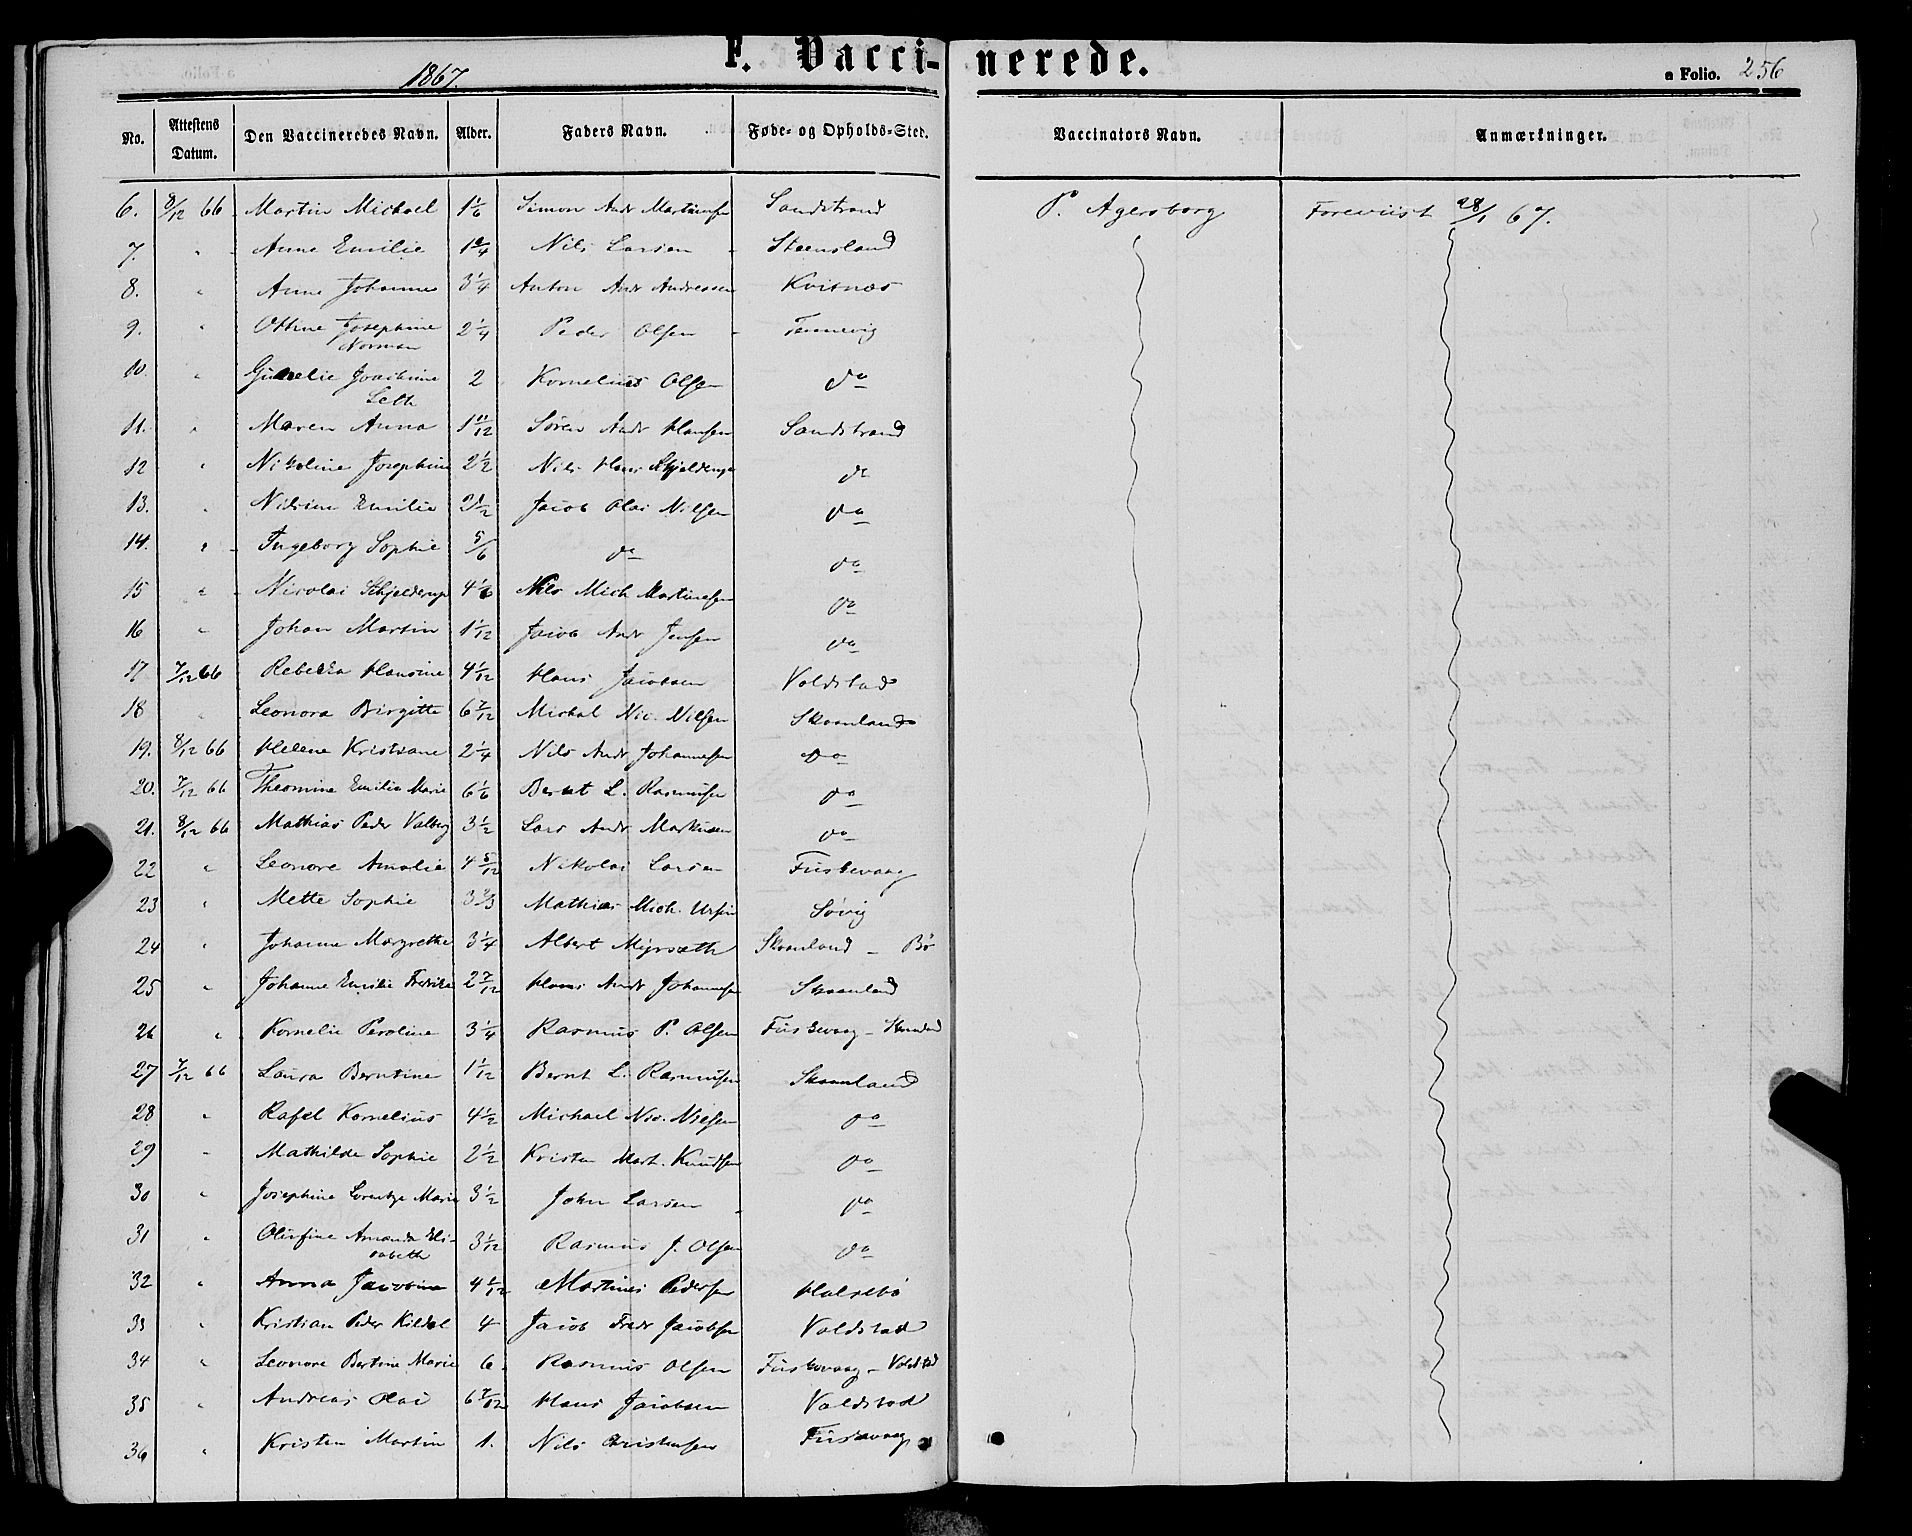 F. Vaccinerede.
1867.
a Folio. 256
No. Attestens Datum. Den Vaccineredes Navn. Alder. Faders Navn. Føde- og Opholds-Sted. Vaccinators Navn. Anmærkninger.
6. 8/12 66 Martin Michael 1 1/6 Simon Andr Martinsen Sandstrand P. Agersborg Foreviist 28/1 67.
7. " Anne Emilie Nils Larsen Steensland
8. " Anne Johanne 3 1/4 Anton Andr Andressen Kvitnæs
9. " Othine Josephine Norman 2 1/4 Peder Olsen Tennevig
10. " Joachime Leth 2 Kornelius Olsen do
11. " Maren Anna 1 11/12 Søren Andr Hansen Sandstrand
12 " Nikoline Josephine 2 1/2 Nils Hans Skjelderup do
13. " Nilsine Emilie 2 1/2 Jacob Olai Nilsen do
14. " Ingeborg Sophie 5/6 do do
15 " Nicolai Skjelderup 4 1/6 Nils Mich Martinesen do
16 " Johan Martin 1 1/12 Jacob Andr Jensen do
17 7/12 66 Rebekka Hansine 4 1/12 Hans Jacobsen Voldstad
18 " Leonora Birgitte 6 7/12 Michal Nic. Nilsen Skaanland
19. 8/12 66 Helene Kristiane 2 1/4 Nils Andr Johannesen do
20. 7/12 66 Theomine Emilie Marie 6 1/6 Bernt L. Rasmusen do
21. 8/12 66 Mathias Peder Valberg 3 1/2 Lars Andr Markusen do
22 " Leonore Amalie 4 5/12 Nikolai Larsen Fiiskevaag
23 " Mette Sophie 3 2/3 Mathias Mich. Ursin Søvig
24 " Johanne Margrethe 3 1/4 Albert Myrsæth Skaanland - Bø
25 " Johanne Emilie Fredrikke 2 7/12 Hans Andr Johannesen Skaanland
26 " Kornelie Peroline 3 1/4 Rasmus P. Olsen Fiiskevaag -
27 7/12 66 Laura Berntine 1 1/12 Bernt L. Rasmusen Skaanland
28 " Rafel Kornelius 4 1/2 Michael Nic. Nielsen do
29 " Mathilde Sophie 2 1/2 Kristen Mart. Knudsen do
30 " Josephine Lorentze Marie 3 1/2 John Larsen do
31 " Olufine Amanda Elisabeth 3 1/12 Rasmus J. Olsen do
32 " Anna Jacobine Martines Pedersen Halsebø
33 " Kristian Peder Kildal 4 Jacob Fredr Jacobsen Voldstad
34 " Leonore Bertine Marie 6. Rasmus Olsen Fiiskevaag - Voldstad
35 " Andreas Olai 6 7/12 Hans Jacobsen Voldstad
36 " Kristen Martin 1. Nils Christensen Fiiskevaag